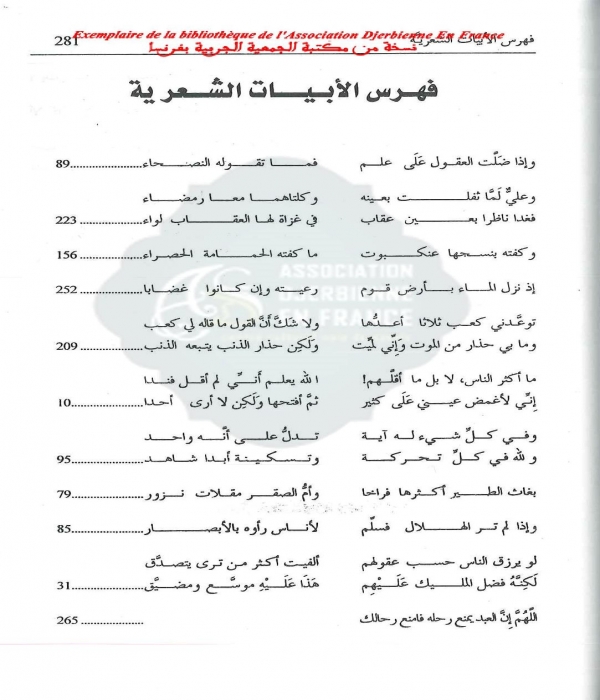 Exemplaire de la bibliothèque de l'Association Djerbienne En France
فهرس الأبيات الشعرية 281
نسخة من مكتبة الجمعية الجربية بفرنسا
فهرس الأبيات الشعرية
وإذا ضلّت العقول عَلَى علم فمـا تقـوله النصحـاء..........89
وعليٌّ لَمَّا تفلت بعينه وكلتاهمـا معـا رمضـاء
فغدا ناظرا بعـين عقاب في غزاة لها العقـاب لواء..........223
وكفته بنسجها عنكبـوت ما كفته الحمـامة الحصـراء..........156
إذ نزل المـاء بـأرض قـوم رعيـته وإن كـانوا غضـابا..........252
توعّدني كعب ثلاثا أعدُّها ولا شكَّ أَنَّ القول ما قاله لي كعب
وما بي حذار من الموت وَإنّي لميّت وَلَكِن حذار الذنب يتبعه الذنب..........209
ما أكثر الناس، لا بل ما أقلّهم! الله يعلم أنـّي لم أقل فنـدا
إِنّي لأغمض عيـني عَلَى كثير ثمّ أفتحها وَلَكِن لا أرى أحدا..........10
وفي كـلّ شيء لـه آية تـدلّ علـى أنّـه واحـد
ولله في كـلّ تحـركـة وتـسكـينة أبـدا شاهـد..........95
بغاث الطـير أكثرها فراخا وأمُّ الصقـر مقلات نـزور..........79
وإذا لم تـر الهـلال فسلّم لأناس رأوه بالأبصـار..........85
لو يرزق الناس حسب عقولهم ألفيت أكثر من ترى يتصدّق
لَكِنَّهُ فضل المليـك عَلَيْهِم هَذَا عَلَيْهِ موسّع ومضيّق..........31
اللَّهُمَّ إنَّ العبد يمنع رحله فامنع رحالك..........265
ASSOCIATION
DJERBIENNE
EN FRANCE